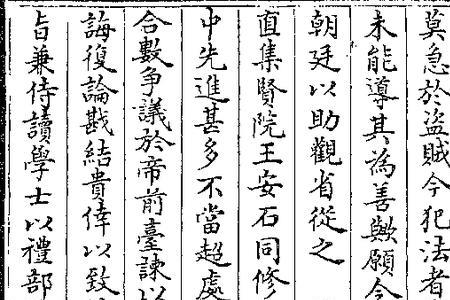 莫急於盜賊今犯法者
未能導其為善歟願令
朝廷以助觀省從之
直集賢院王安石同修
中先進甚多不當超處
合數爭議於帝前臺諫以
誨復論戡結貴倖以致
旨兼侍讀學士以禮部